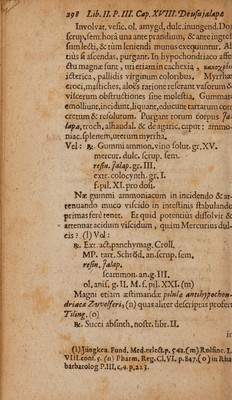 298 Lib. II. P. III. Cap. XVIII. De usu jalapæ
Involvat. vesic. ol. amygd. dulc. inungend. Do
scrup. sem. hora una ante prandium, & ante ingres
sum lecti, & tùm leniendi munus exequuntur. Al
tiùs si ascendas, purgant. In hypochondriaco affe-
ctu magnæ sunt, uti etiam in cachexia,
icterica, pallidis virginum coloribus. Myrrhæ
troci, mastiches, aloës ratione reserant vasorum &
viscerum obstructiones sine molestia. Gummata
emolliunt, incidunt, liquant, educunt tartarum con
cretum & resolutum. Purgant totum corpus ja-
lapa, troch. alhandal. & de agaric. caput: ammo-
niac. splenem, uterum myrrha.
Vel: ℞. Gummi ammon. vino solut. gr. XV.
mercur. dulc. scrup. sem.
resin. Jalap. gr. III.
extr. colocynth. gr. I.
f. pil. XI. pro dosi.
Næ gummi ammoniacum in incidendo & at-
tenuando muco viscido in intestinis stabulande
primas ferè tenet. Et quid potentiùs dissolvit &
attenuat acidum viscidum, quim Mercurius dul-
cis? (l) Vel:
℞. Extr. act. panchymag. Croll.
MP. tart. Schröd. an. scrup. sem.
resin. Jalap.
scammon. an. g. III.
ol. anis. g. II. M. f. pil. XXI. (m)
Magni etiam æstimandæ pilulæ antihypochon-
driacæ Zwvelferi, (n) quas aliter descriptas profert
Tiling. (o)
℞. Succi absinth. nostr. libr. II.
(l) Jüngken. Fund. Med. eclect. p. 542. (m) Rolfinc. L
VIII. conf. 5. (n) Pharm. Reg. Cl. VI. p. 847. (o) in Rha
barbarolog. P. III. c. 4. p. 223.